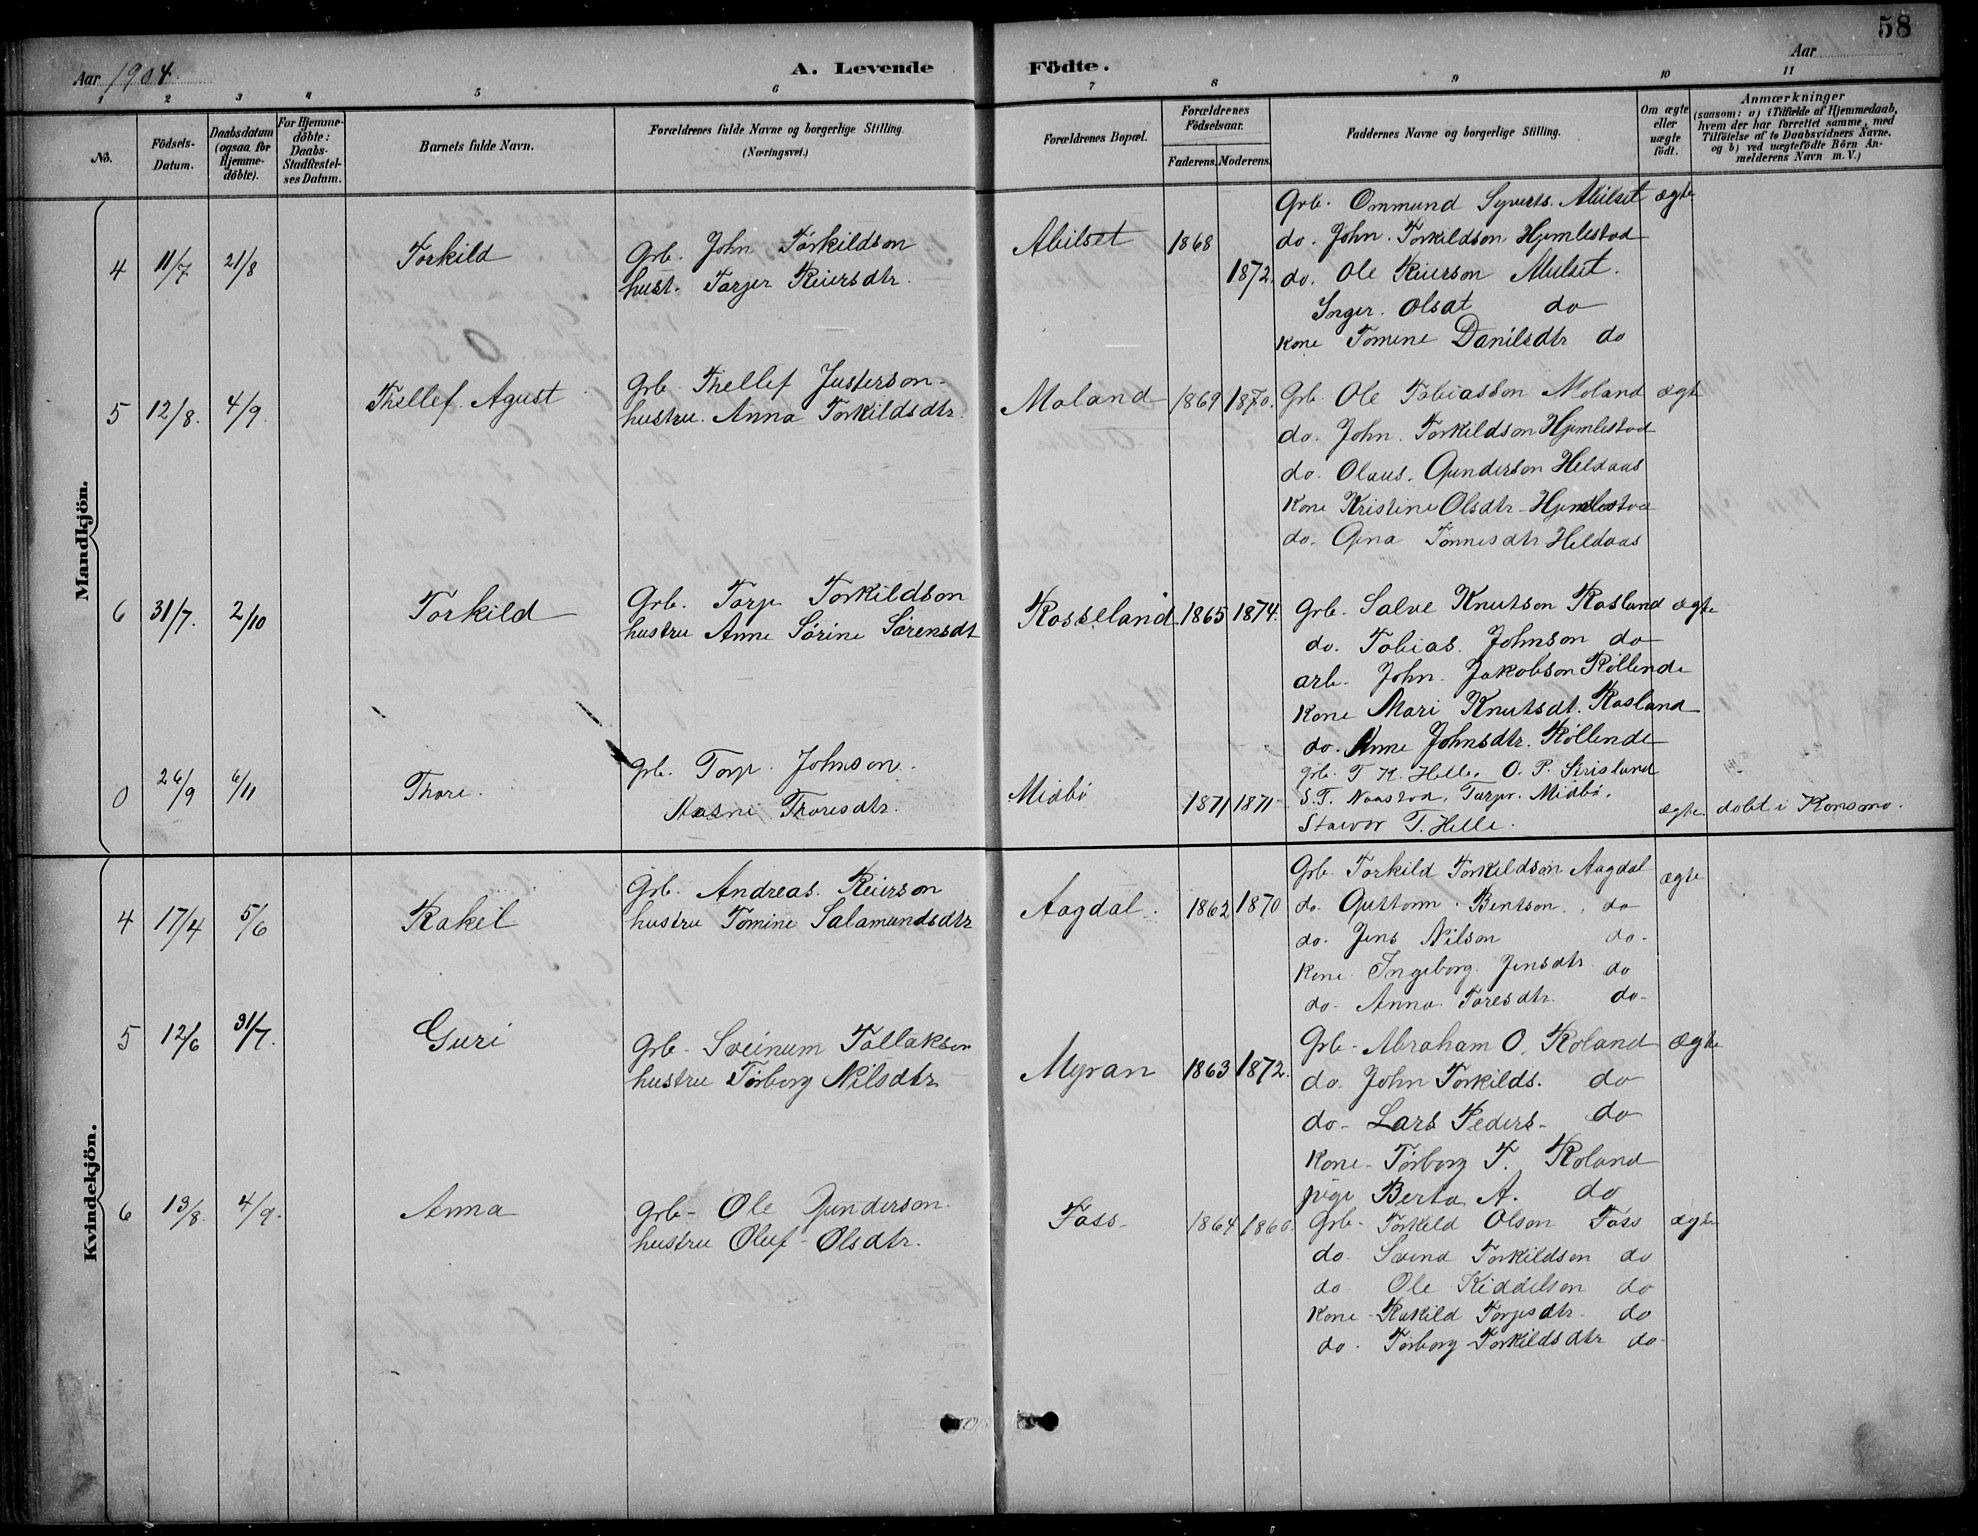 58
Aar 1904.
A. Levende Födte.
Aar
1 2 3 4 5 6 7 8 9 10 11
No.
Födsels-Datum.
Daabsdatum (ogsaa for Hjemme-döbte).
For Hjemme-döbte: Daabs-Stadfæstel-ses Datum.
Barnets fulde Navn.
Forældrenes fulde Navne og borgerlige Stilling.
(Næringsvei.)
Forældrenes Bopæl.
Forældrenes Födselsaar.
Faderens. Moderens.
Faddernes Navne og borgerlige Stilling.
Om ægte eller uægte födt.
Anmærkninger
(saasom: a) i Tilfælde af Hjemmedaab, hvem der har forrettet samme, med Tilföielse af to Daabsvidners Navne, og b) ved uægtefödte Börn An-melderens Navn m. V.)
Mandkjön.
4 11/7 21/8 Torkild
Grb. John Torkildson
hust. Tarjer Reiersdtr.
Abilset 1868 1872.
Grb. Ommund Syverts. Abilset ægte
do. John. Torkildson Hjemlestad
do. Ole Reierson Abilset.
Inger. Olsdt do
Kone Tomine Danilsdtr do
5 12/8. 4/9. Thellef Agust
Grb. Thellef Justerson
hustru. Anna Torkildsdtr.
Moland 1869 1870.
Grb. Ole Tobiasson Moland ægte
do. John. Torkildson Hjemlestad
do. Olaus. Gunderson Heldaas
Kone Kristine Olsdtr Hjemlestad
do. Gina Tonnesdtr Heldaas
6 31/7. 2/10 Torkild
Grb. Tarje Torkildson
hustru Anne Sörine Sörensdt
Rosseland 1865 1874.
Grb. Salve Knutson Rasland ægte
do. Tobias. Johnson do
arb. John. Jakobson Röllende
Kone Mari Knutsdt. Rasland
do. Anne Johnsdtr. Röllende
0 26/9 6/11 Thore.
Grb. Torje. Johnson.
Aasne Thoresdtr.
Midbö 1871 1871
Grb. T. K. Helle, O. P. Strisland
S. T. Naastad, Tarje. Midbö.
T. Helle.
ægte. döbt i Konsmo.
Kvindekjön.
4 17/4 5/6 Rakel
Grb. Andreas. Reierson
hustru Tomine Salamundsdtr
Aagdal. 1862 1870
Grb. Torkild Torkildson Aagdal ægte
do. Guttorm. Bentson. do
do. Jens Nilson do.
Kone Ingeborg. Jensdtr. do
do. Anna Toresdtr. do
5 12/6 31/7. Guri
Grb. Sveinum Tallakson
hustru Törborg Nilsdtr
Myran 1863 1872.
Grb. Abraham O. Roland ægte
do. John Torkilds. do
do. Lars Peders. do
Kone Törborg T. Roland
pige Berta A. do
6 13/8. 4/9. Anna
Grb. Ole Gunderson
hustru Oluf Olsdtr.
Foss 1864 1860.
Grb. Torkild Olson Foss ægte
do Svend Torkildson do
do Ole Kiddelson do
Kone Rakild Torjusdtr. do
do. Törborg Torkildsdtr do